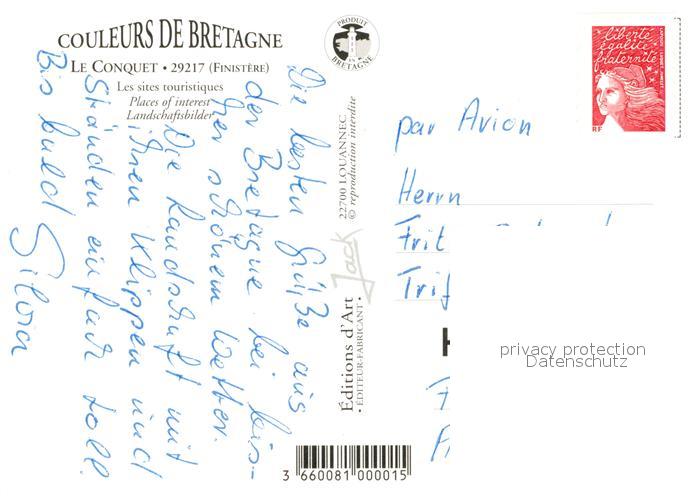 COULEURS DE BRETAGNE
LE CONQUET • 29217 (FINISTÈRE)
Les sites touristiques
Places of interest
Landschaftsbilder
PRODUIT EN BRETAGNE
liberté
égalité
fraternité
RF
Die besten Grüße aus
der Bretagne bei bis-
her schönem Wetter.
Die Landschaft mit
ihren Klippen und
Stränden einfach toll.
Bis bald Silvia
22700 LOUANNEC
© reproduction interdite
Jack
Éditions d'Art
• ÉDITEUR-FABRICANT •
par Avion
Herrn
Frit
Trif
privacy protection
Datenschutz
3 660081 000015